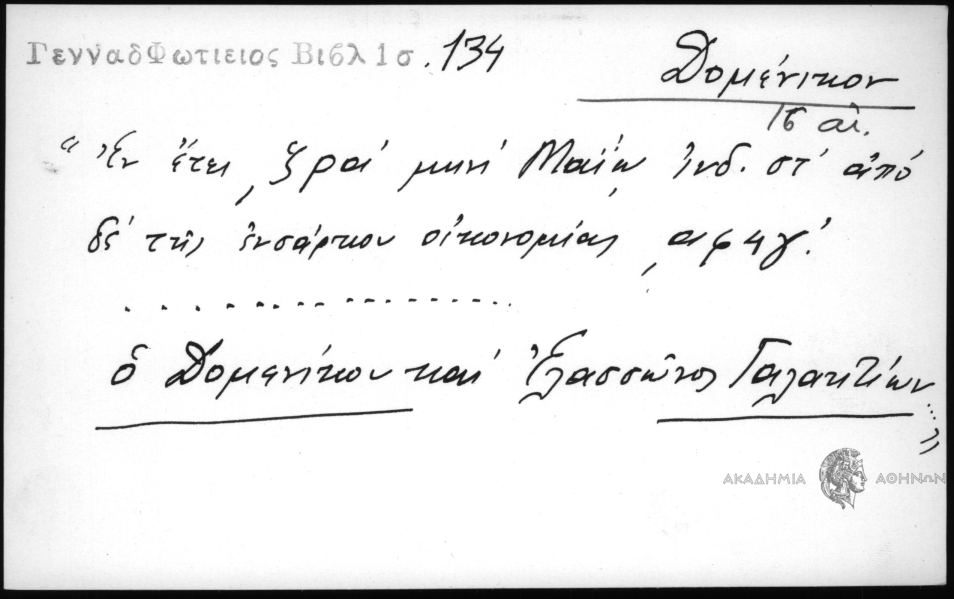 ΓενναδΦωτιειος Βιβλ 1σ. 134
Δομένικον
15 αἰ.
" Ἐν ἔτει ͵ζρα΄ μηνί Μαΐῳ ἰνδ. στ΄ ἀπό
δέ τῆς ἐνσάρκου οἰκονομίας ͵αφ4γ΄.
..................
ὁ Δομενίκου καί Ἐλασσῶνος Γαλακτίων...."
ΑΚΑΔΗΜΙΑ ΑΘΗΝΩΝ